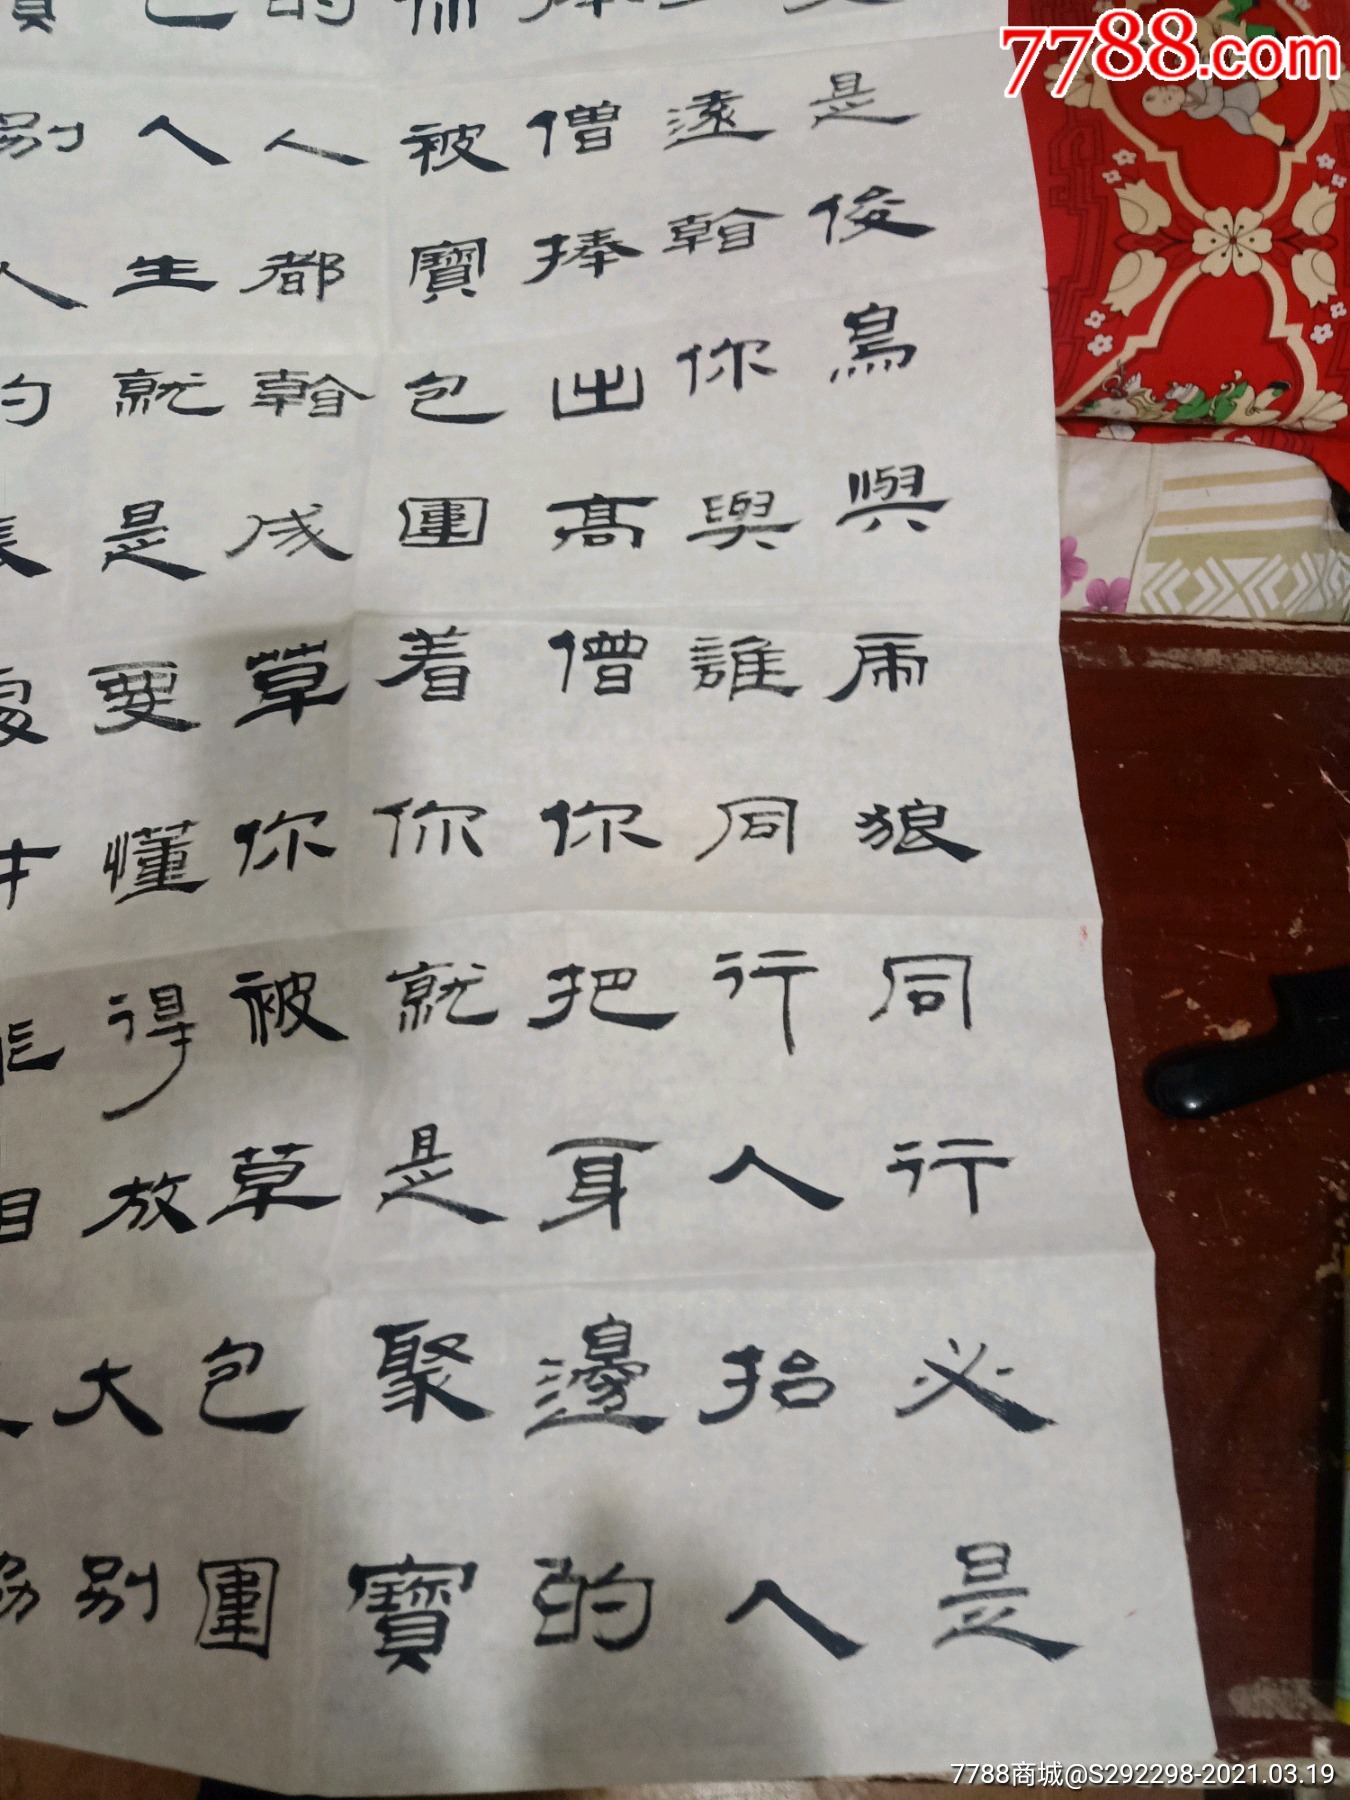 是俊鳥與乕狼同行必是
遠看你與誰同行人抬人
僧捧出高僧你把身邊的
被寶包圍着你就是聚寶
人都看成草你被草包圍
人生就是要懂得放大別
別人
7788.com
7788商城@S292298-2021.03.19